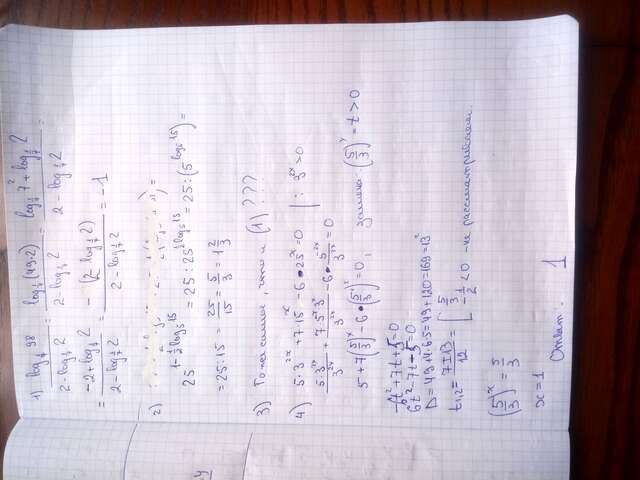 1) log_{1/7} 98 / (2 - log_{1/7} 2) = log_{1/7} (49·2) / (2 - log_{1/7} 2) = (log_{1/7} 7² + log_{1/7} 2) / (2 - log_{1/7} 2) =
= (-2 + log_{1/7} 2) / (2 - log_{1/7} 2) = -(2 - log_{1/7} 2) / (2 - log_{1/7} 2) = -1
2)
25^{1 - 1/2 log_5 15} = 25 : 25^{1/2 log_5 15} = 25 : (5^{log_5 15}) =
= 25 : 15 = 25/15 = 5/3 = 1 2/3
3) То же самое, что и (1) ???
4) 5·3^{2x} + 7·15^x - 6·25^x = 0 | : 3^{2x} > 0
5·3^{2x}/3^{2x} + 7·5^x·3^x/3^{2x} - 6·5^{2x}/3^{2x} = 0
5 + 7(5/3)^x - 6·(5/3)^{2x} = 0, замена: (5/3)^x = t > 0
-6t² + 7t + 5 = 0
6t² - 7t - 5 = 0
D = 49 + 4·6·5 = 49 + 120 = 169 = 13²
t_{1,2} = (7 ± 13)/12 = [ 5/3
-1/2 < 0 - не рассматриваем.
(5/3)^x = 5/3
x = 1
Ответ: 1